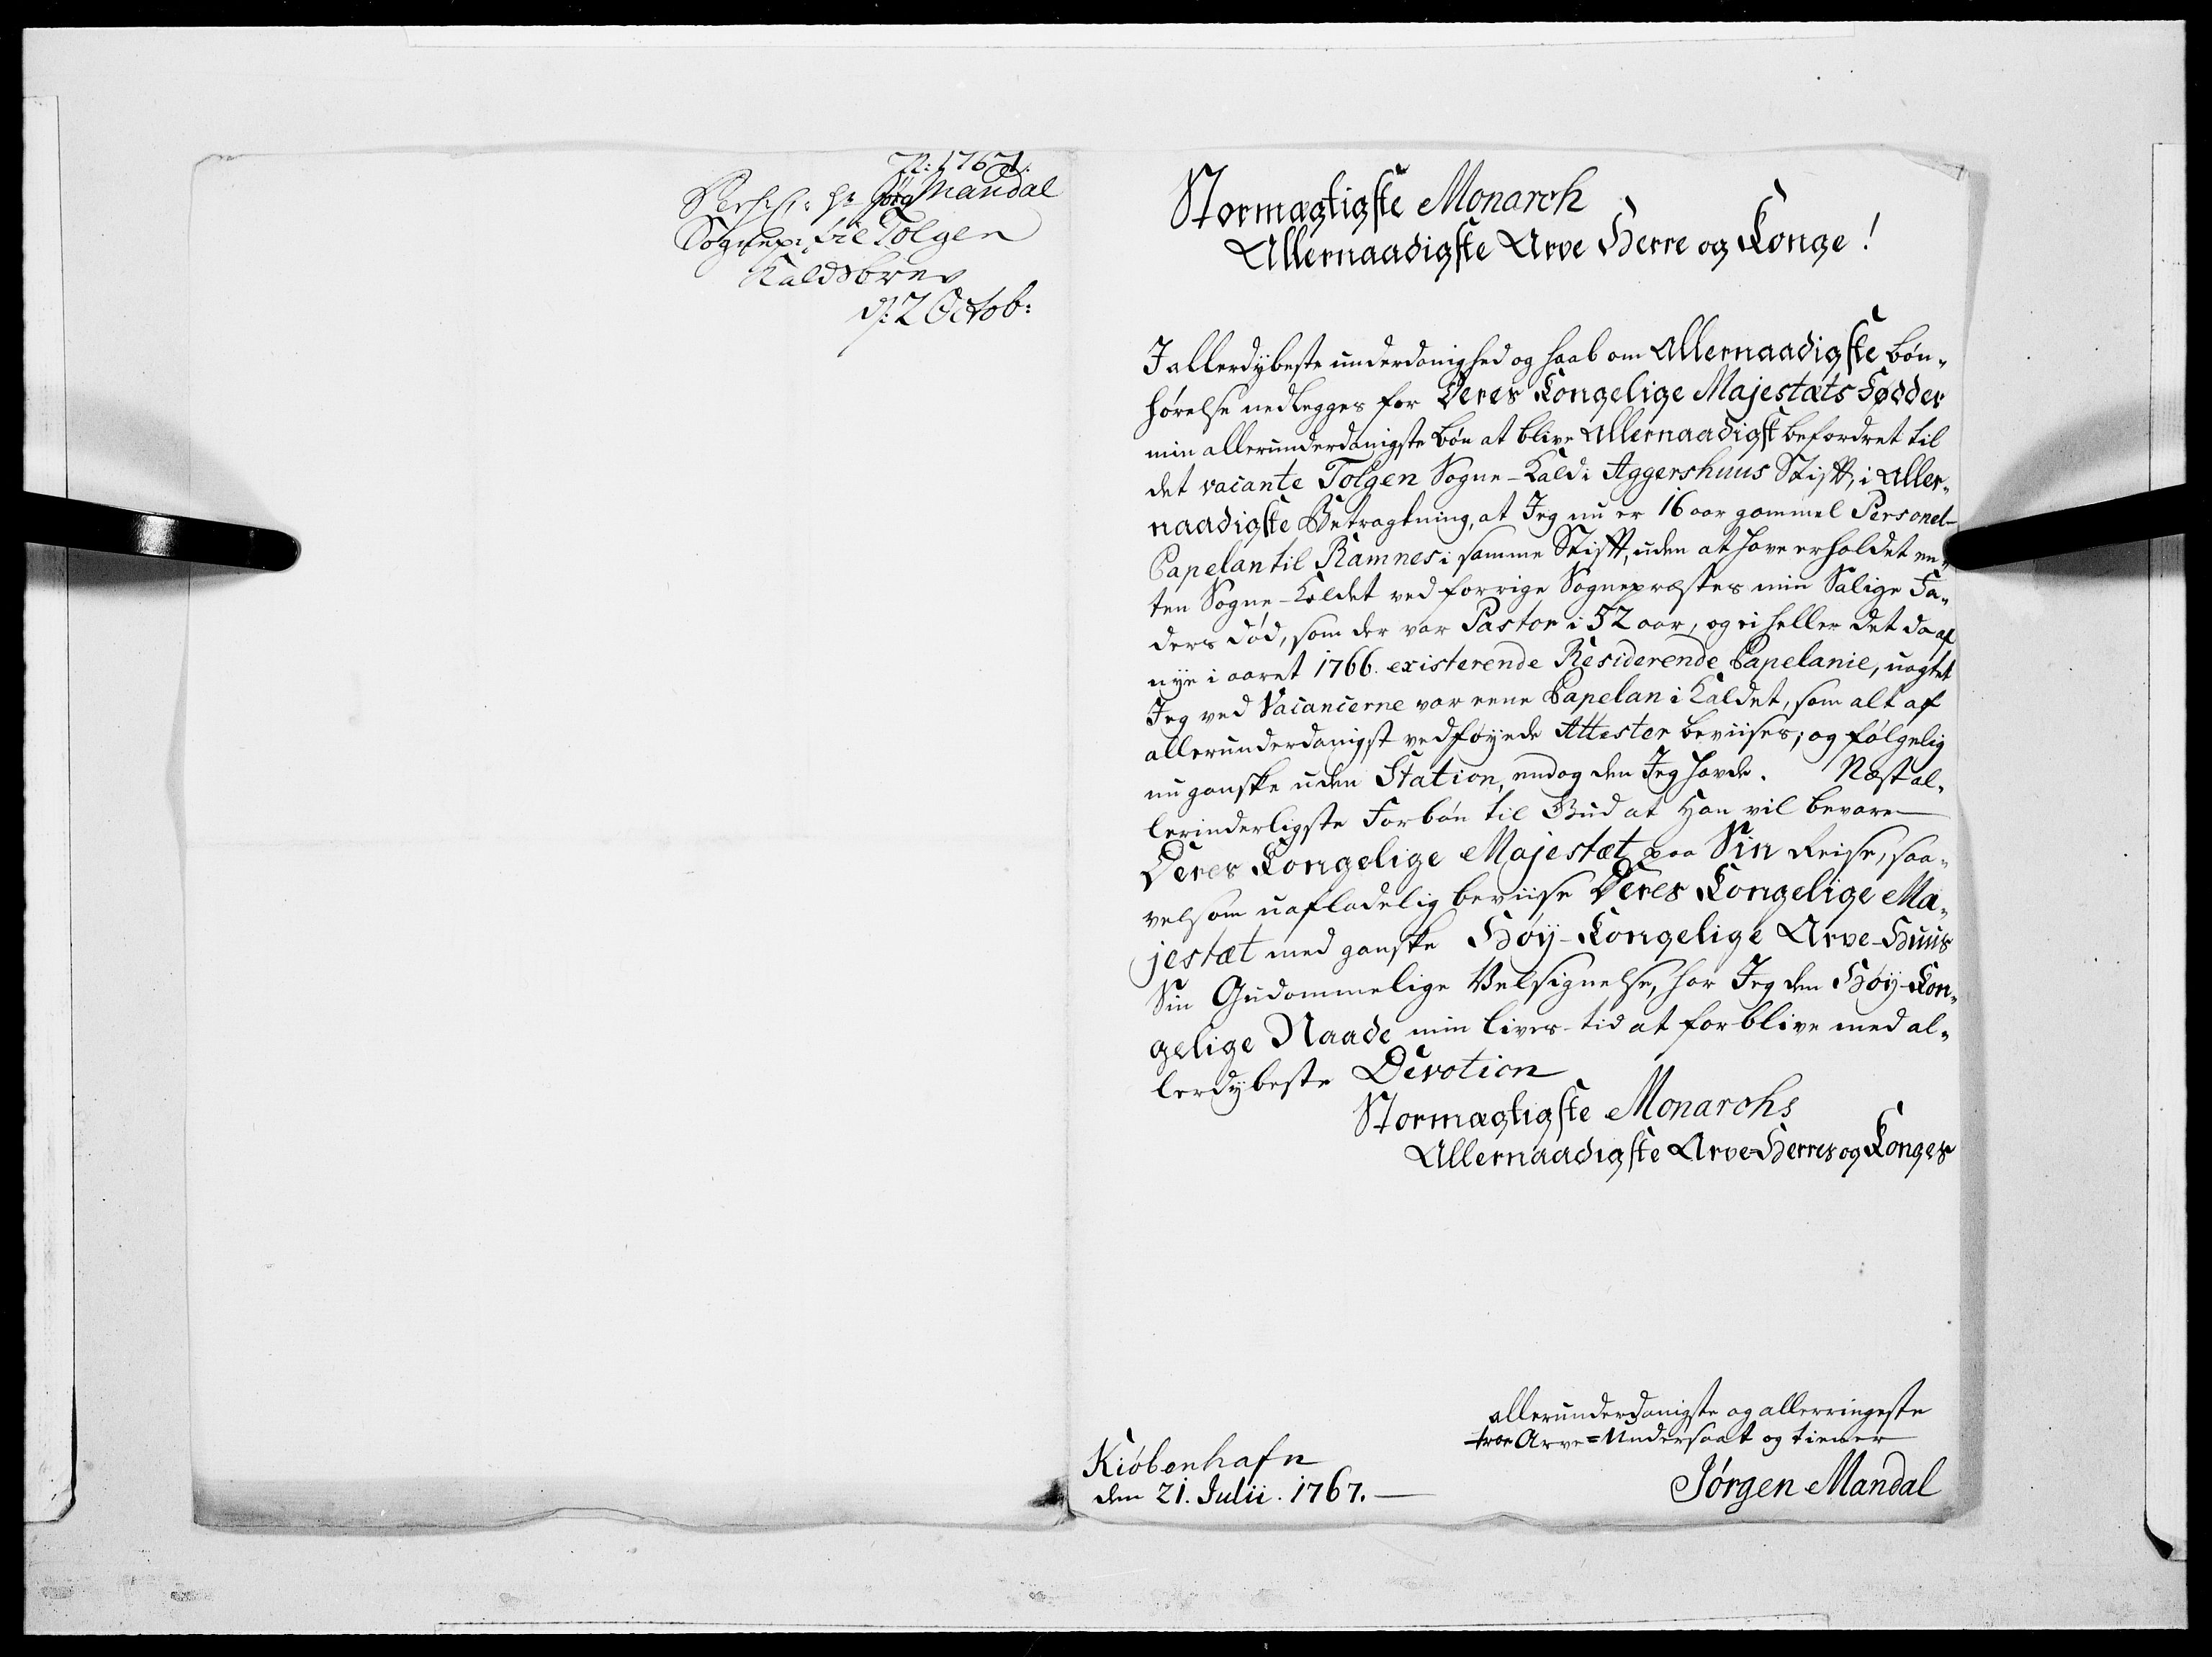 1767
Mandal
Sognepr: til Tolgen
Kaldsbrev
d: 2 Octob:
Stormægtigste Monarch
Allernaadigste Arve Herre og Konge!
I allerdybeste underdanighed og haab om Allernaadigste bøn-
hørelse nedlegges for Deres Kongelige Majestæts Fødder
min allerunderdanigste bøn at blive Allernaadigst befordret til
det vacante Tolgen Sogne-Kald i Aggershuus Stift, i Aller-
naadigste Betragtning, at Jeg nu er 16 aar gammel Personel-
Capelan til Ramnes i samme Stift, uden at have erholdet en-
ten Sogne-Kaldet ved forrige Sognepræstes min Salige Fa-
ders død, som der var Pastor i 52 aar, og ei heller det da af
nye i aaret 1766. existerende Residerende Capelanie, uagtet
Jeg ved Vacancerne var eene Capelan i Kaldet, som alt af
allerunderdanigst vedføyede Attester beviises; og følgelig
nu ganske uden Station, endog den Jeg havde. Næst al-
lerinderligste Forbøn til Gud at Han vil bevare
Deres Kongelige Majestæt paa Sin Reise, saa-
velsom uafladelig beviise Deres Kongelige Ma-
jestæt med ganske Høy-Kongelige Arve-Huus
Sin Gudommelige Velsignelse, har Jeg den Høy-Kon-
gelige Naade min livs-tid at forblive med al-
lerdybeste Devotion
Stormægtigste Monarchs
Allernaadigste Arve-Herres og Konges
allerunderdanigste og allerringeste
troe Arve=Undersaat og tiener
Kiöbenhafn
den 21. Julii. 1767.
Jörgen Mandal